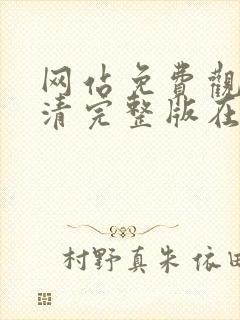 网佔免費觀
清完整版在
村野真朱 依田